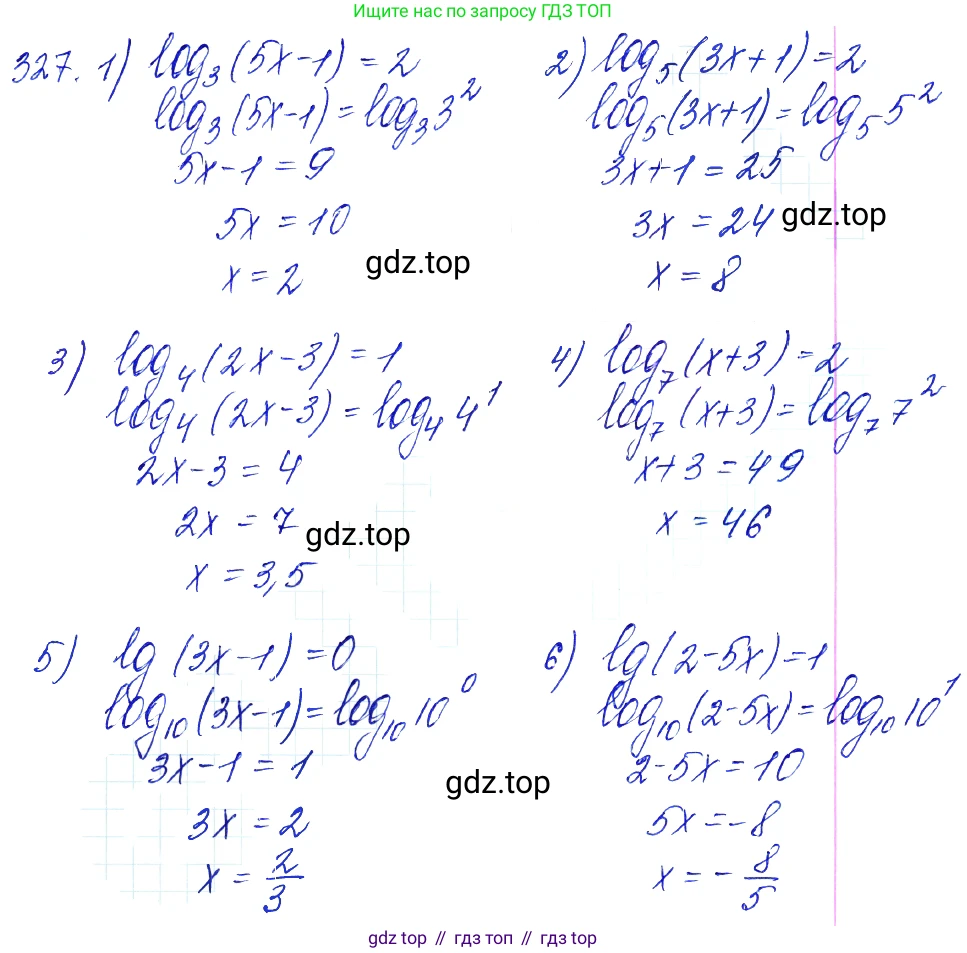 Ищите нас по запросу ГДЗ ТОП
327. 1) log₃(5x-1) = 2
log₃(5x-1) = log₃3²
5x-1 = 9
5x = 10
x = 2
gdz.top
2) log₅(3x+1) = 2
log₅(3x+1) = log₅5²
3x+1 = 25
3x = 24
gdz.top
x = 8
3) log₄(2x-3) = 1
log₄(2x-3) = log₄4¹
2x-3 = 4
2x = 7
gdz.top
x = 3,5
4) log₇(x+3) = 2
log₇(x+3) = log₇7²
x+3 = 49
x = 46
5) lg(3x-1) = 0
log₁₀(3x-1) = log₁₀10⁰
3x-1 = 1
gdz.top
3x = 2
x = 2/3
6) lg(2-5x) = 1
log₁₀(2-5x) = log₁₀10¹
2-5x = 10
5x = -8
x = -8/5
gdz top // гдз топ // gdz top